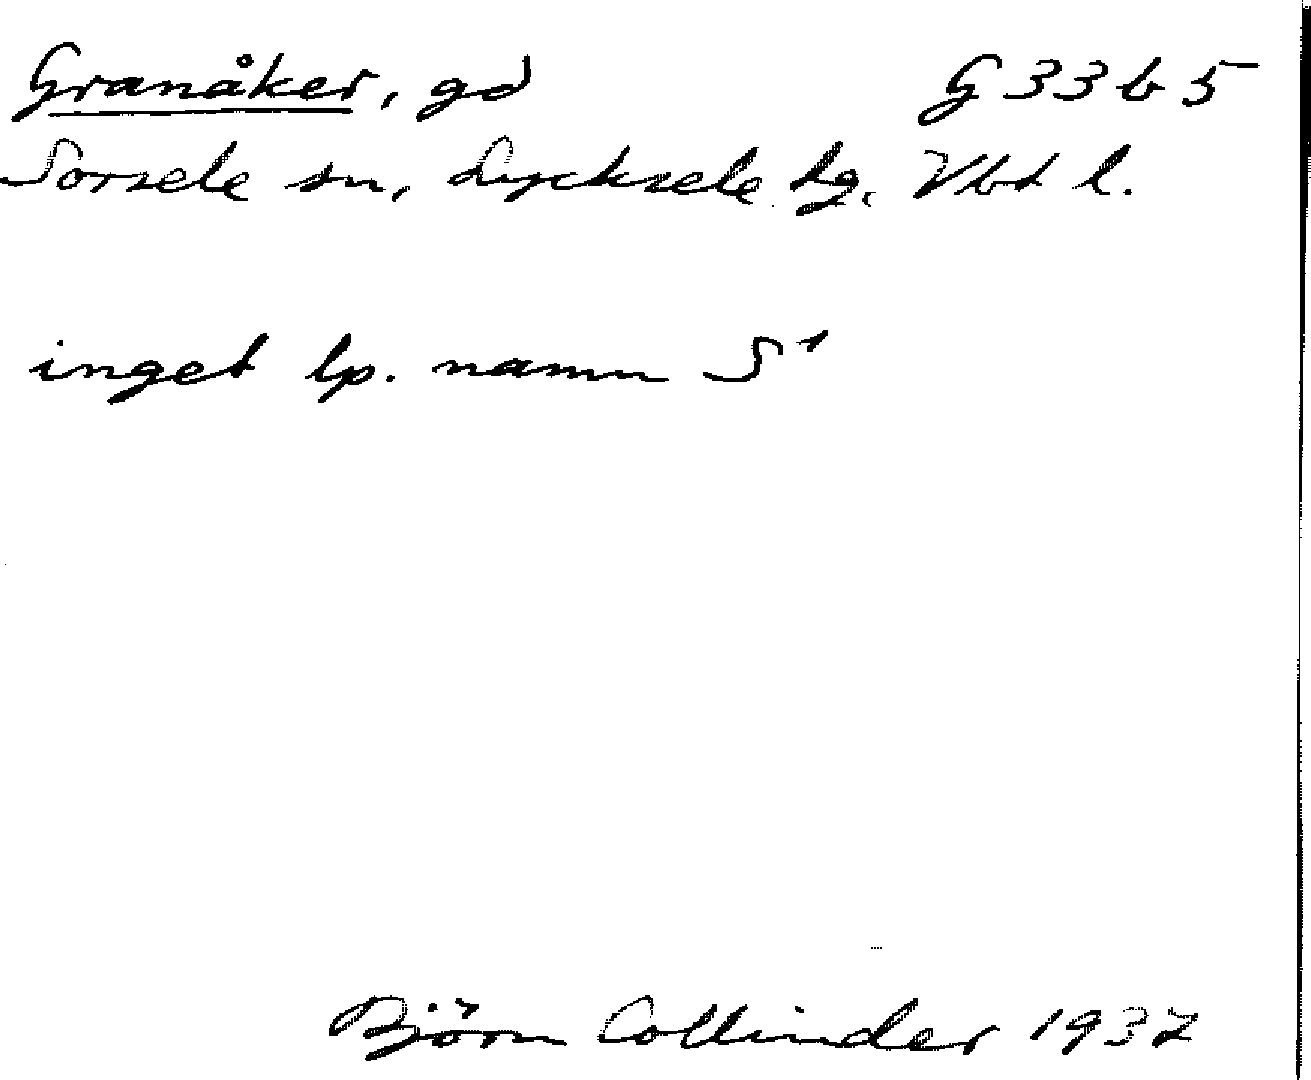 Granåker, gd G 33 b 5
Sorsele sn, Lycksele lg. Vbt l.
inget lp. namn S¹
Björn Collinder 1937